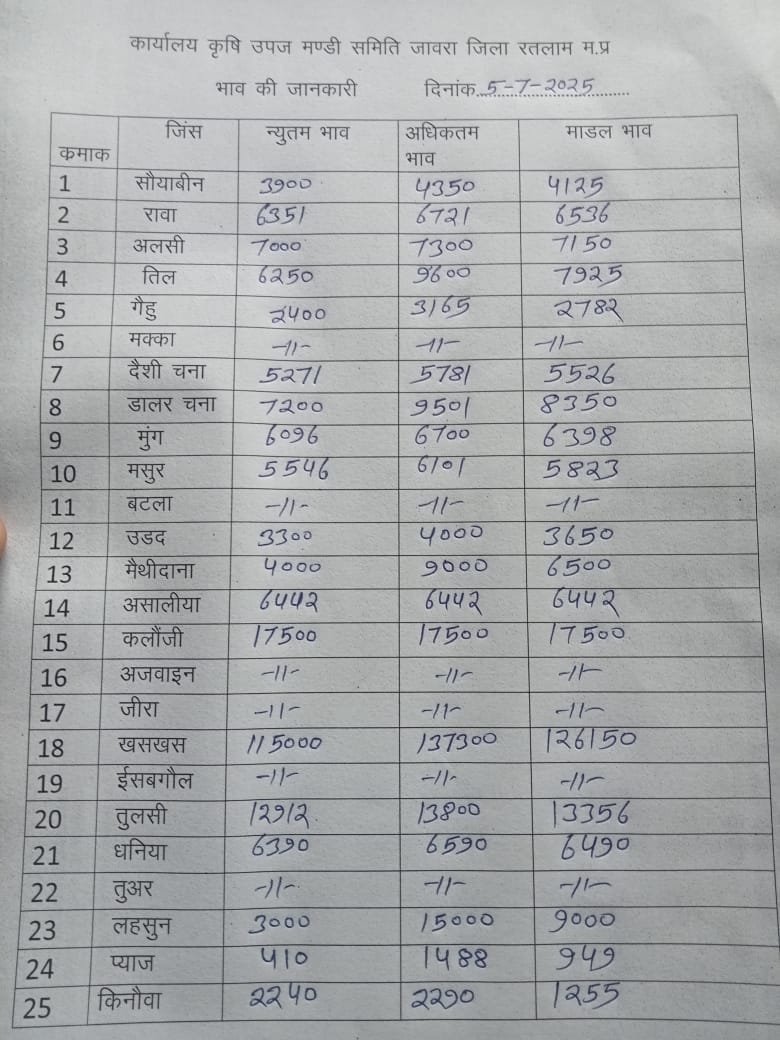 कार्यालय कृषि उपज मण्डी समिति जावरा जिला रतलाम म.प्र
भाव की जानकारी दिनांक 5-7-2025
कमाक जिंस न्युतम भाव अधिकतम भाव माडल भाव
1 सौयाबीन 3900 4350 4125
2 रावा 6351 6721 6536
3 अलसी 7000 7300 7150
4 तिल 6250 9600 7925
5 गैहु 2400 3165 2782
6 मक्का -11- -11- -11-
7 दैशी चना 5271 5781 5526
8 डालर चना 7200 9501 8350
9 मुंग 6096 6700 6398
10 मसुर 5546 6101 5823
11 बटला -11- -11- -11-
12 उडद 3300 4000 3650
13 मैथीदाना 4000 9000 6500
14 असालीया 6442 6442 6442
15 कलौंजी 17500 17500 17500
16 अजवाइन -11- -11- -11-
17 जीरा -11- -11- -11-
18 खसखस 115000 137300 126150
19 ईसबगौल -11- -11- -11-
20 तुलसी 12912 13800 13356
21 धनिया 6390 6590 6490
22 तुअर -11- -11- -11-
23 लहसुन 3000 15000 9000
24 प्याज 410 1488 949
25 किनौवा 2240 2290 1255